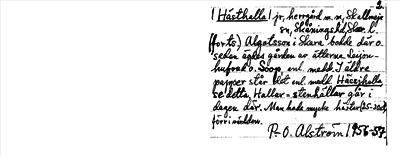 2.
! Hästhalla! jr, herrgård m. m, Skallmeja
sn, Skånings hd, Skar. l.
(forts.) Algotsson i Skara bodde där o.
sedan ägdes gården av ätterna Lejon-
hufvud o. Soop, enl. medd. I äldre
papper står det enl. medd Hässjhalla
se detta. Hallar = stenhällar går i
dagen där. Man hade mycke hästar (25-30)
förr i världen.
P.-O. Alström 1956-57.